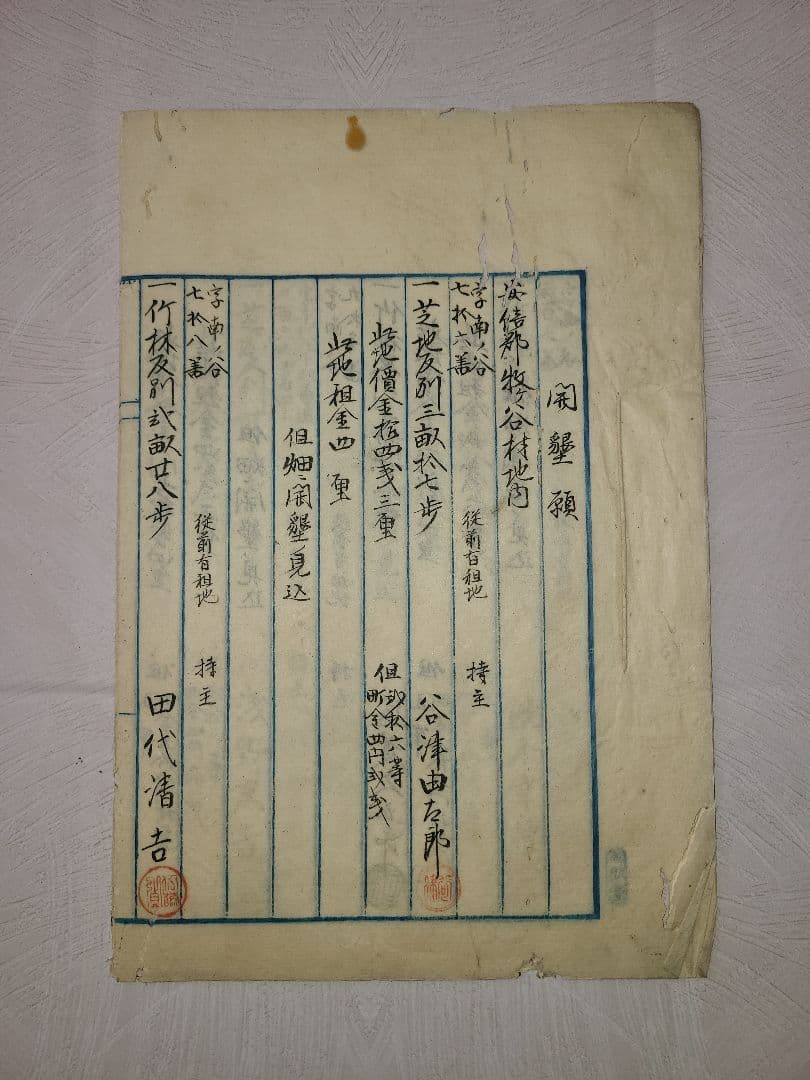 開墾願
安倍郡牧ヶ谷村地内
字南ノ谷
七拾六番 従前有租地 持主
一芝地反別三畝拾七歩 谷津由太郎
此地價金拾四銭三厘 但弐拾六等
町金四円弐銭
此地租金四厘
但畑ニ開墾見込
字南ノ谷
七拾八番 従前有租地 持主
一竹林反別弐畝廿八歩 田代清吉